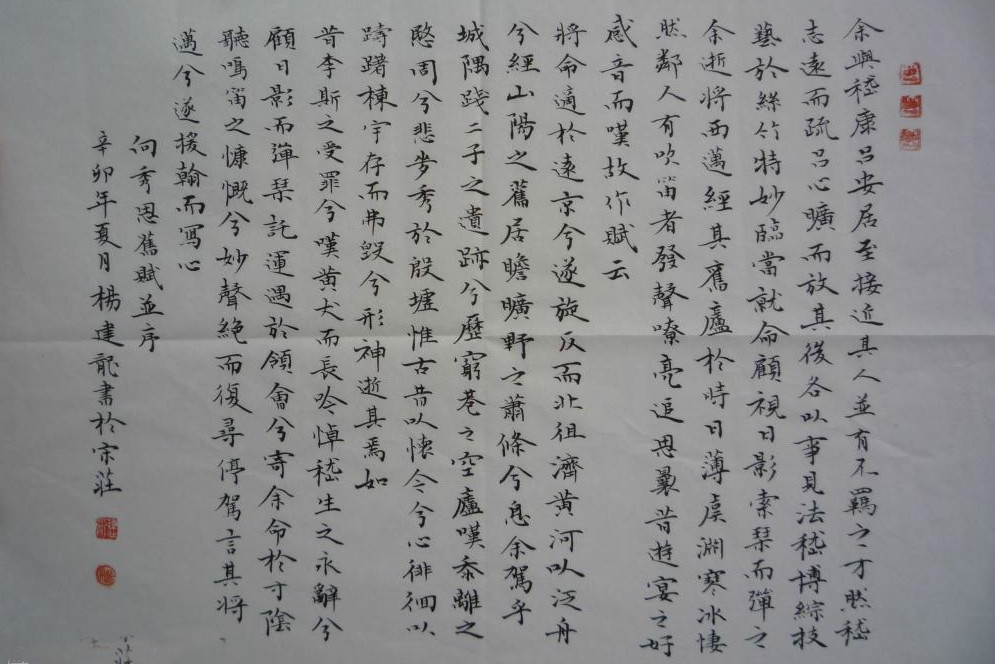 余與嵇康呂安居至接近其人並有不羈之才然嵇
志遠而疏呂心曠而放其後各以事見法嵇博綜技
藝於絲竹特妙臨當就命顧視日影索琴而彈之
余逝將西邁經其舊廬於時日薄虞淵寒冰悽
然鄰人有吹笛者發聲嘹亮追思曩昔遊宴之好
感音而嘆故作賦云
將命適於遠京兮遂旋反而北徂濟黃河以泛舟
兮經山陽之舊居瞻曠野之蕭條兮息余駕乎
城隅踐二子之遺跡兮歷窮巷之空廬嘆黍離之
愍周兮悲步秀於殷墟惟古昔以懷今兮心徘徊以
躊躇棟宇存而弗毀兮形神逝其焉如
昔李斯之受罪兮嘆黃犬而長吟悼嵇生之永辭兮
顧日影而彈琴託運遇於領會兮寄余命於寸陰
聽鳴笛之慷慨兮妙聲絕而復尋停駕言其將
邁兮遂援翰而寫心
向秀思舊賦並序
辛卯年夏月楊建龍書於宗莊